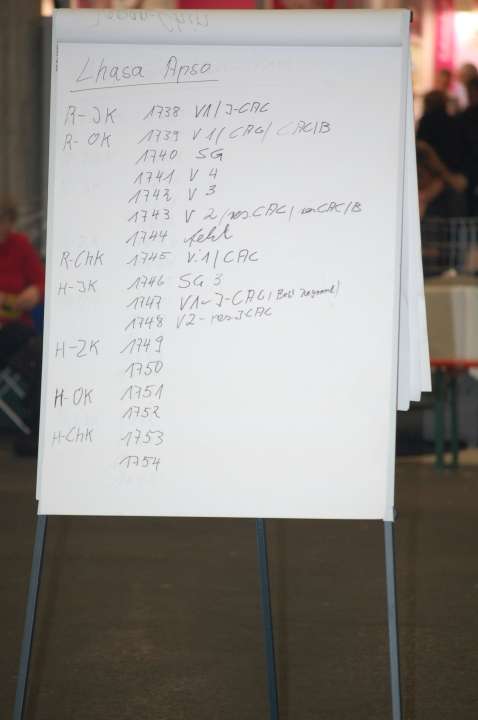 Lhasa Apso
R-JK 1738 V1/J-CAC
R-OK 1739 V1/CAC/CACIB
1740 SG
1741 V 4
1742 V 3
1743 V 2/res.CAC/res.CACIB
1744 fehlt
R-ChK 1745 V.1/CAC
H-JK 1746 SG 3
1747 V1-J-CAC, Best
1748 V2-res.JCAC
H-ZK 1749
1750
H-OK 1751
1752
H-ChK 1753
1754